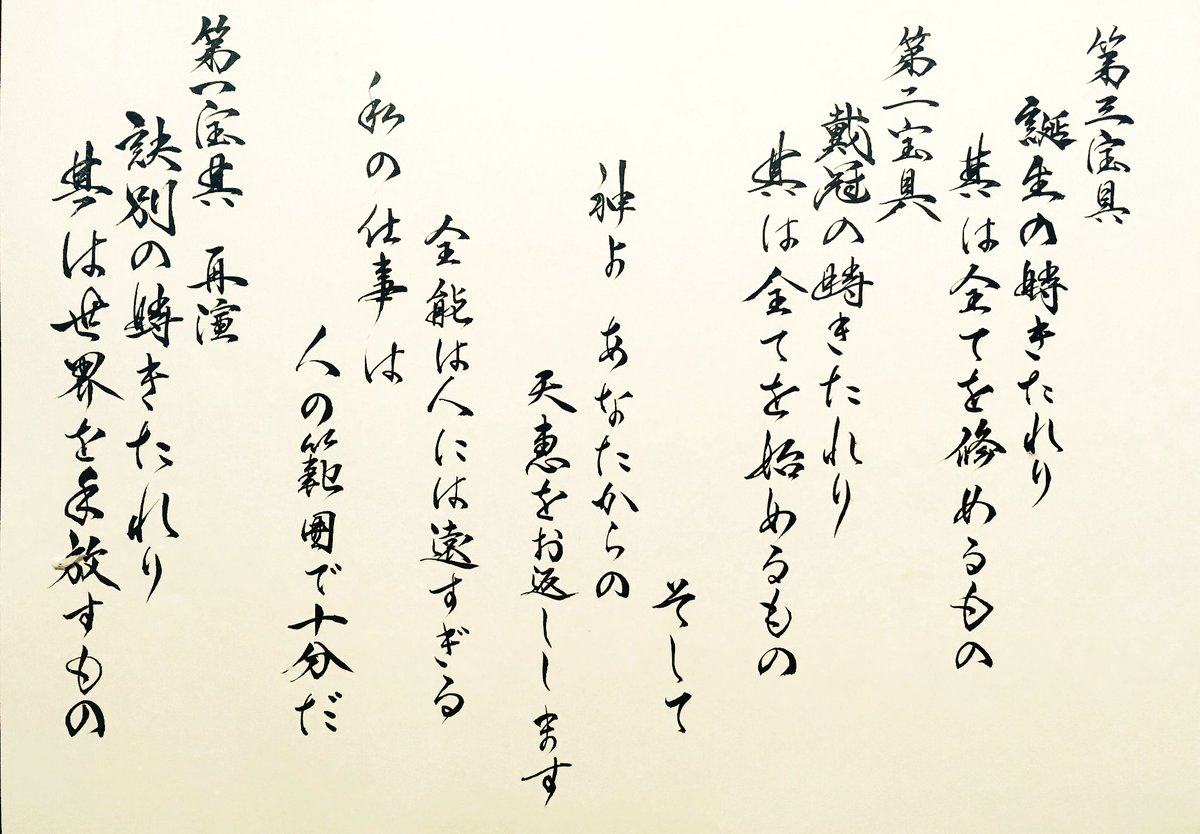 第三宝具
誕生の時きたれり
其は全てを修めるもの
第二宝具
戴冠の時きたれり
其は全てを始めるもの
そして
神よ あなたからの
天恵をお返しします
全能は人には遠すぎる
私の仕事は
人の範囲で十分だ
第一宝具 再演
訣別の時きたれり
其は世界を手放すもの